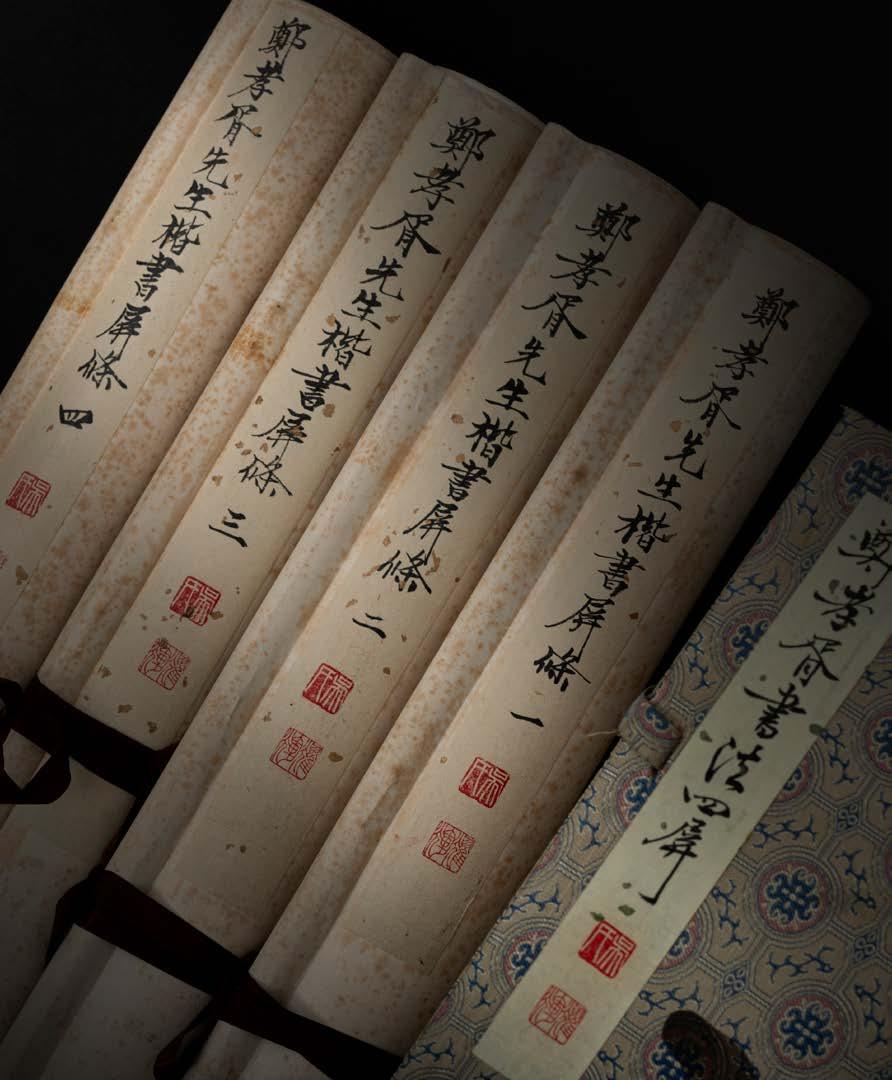 鄭孝胥先生楷書屏條 四
鄭孝胥先生楷書屏條 三
鄭孝胥先生楷書屏條 二
鄭孝胥先生楷書屏條 一
鄭孝胥書法四屏